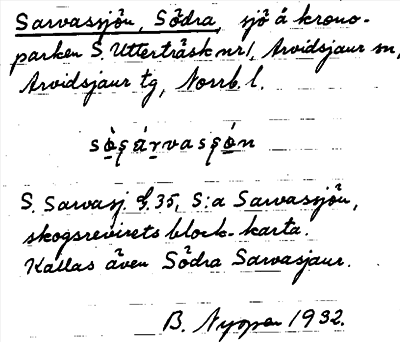 Sarvasjön, Södra, sjö å krono-
parken S. Utterträsk nr 1, Arvidsjaur sn,
Arvidsjaur tg, Norrb. l.
S. Sarvasj. G. 35, S:a Sarvasjön,
skogsrevirets block-karta.
Kallas även Södra Sarvasjaur.
B. Nyman 1932.